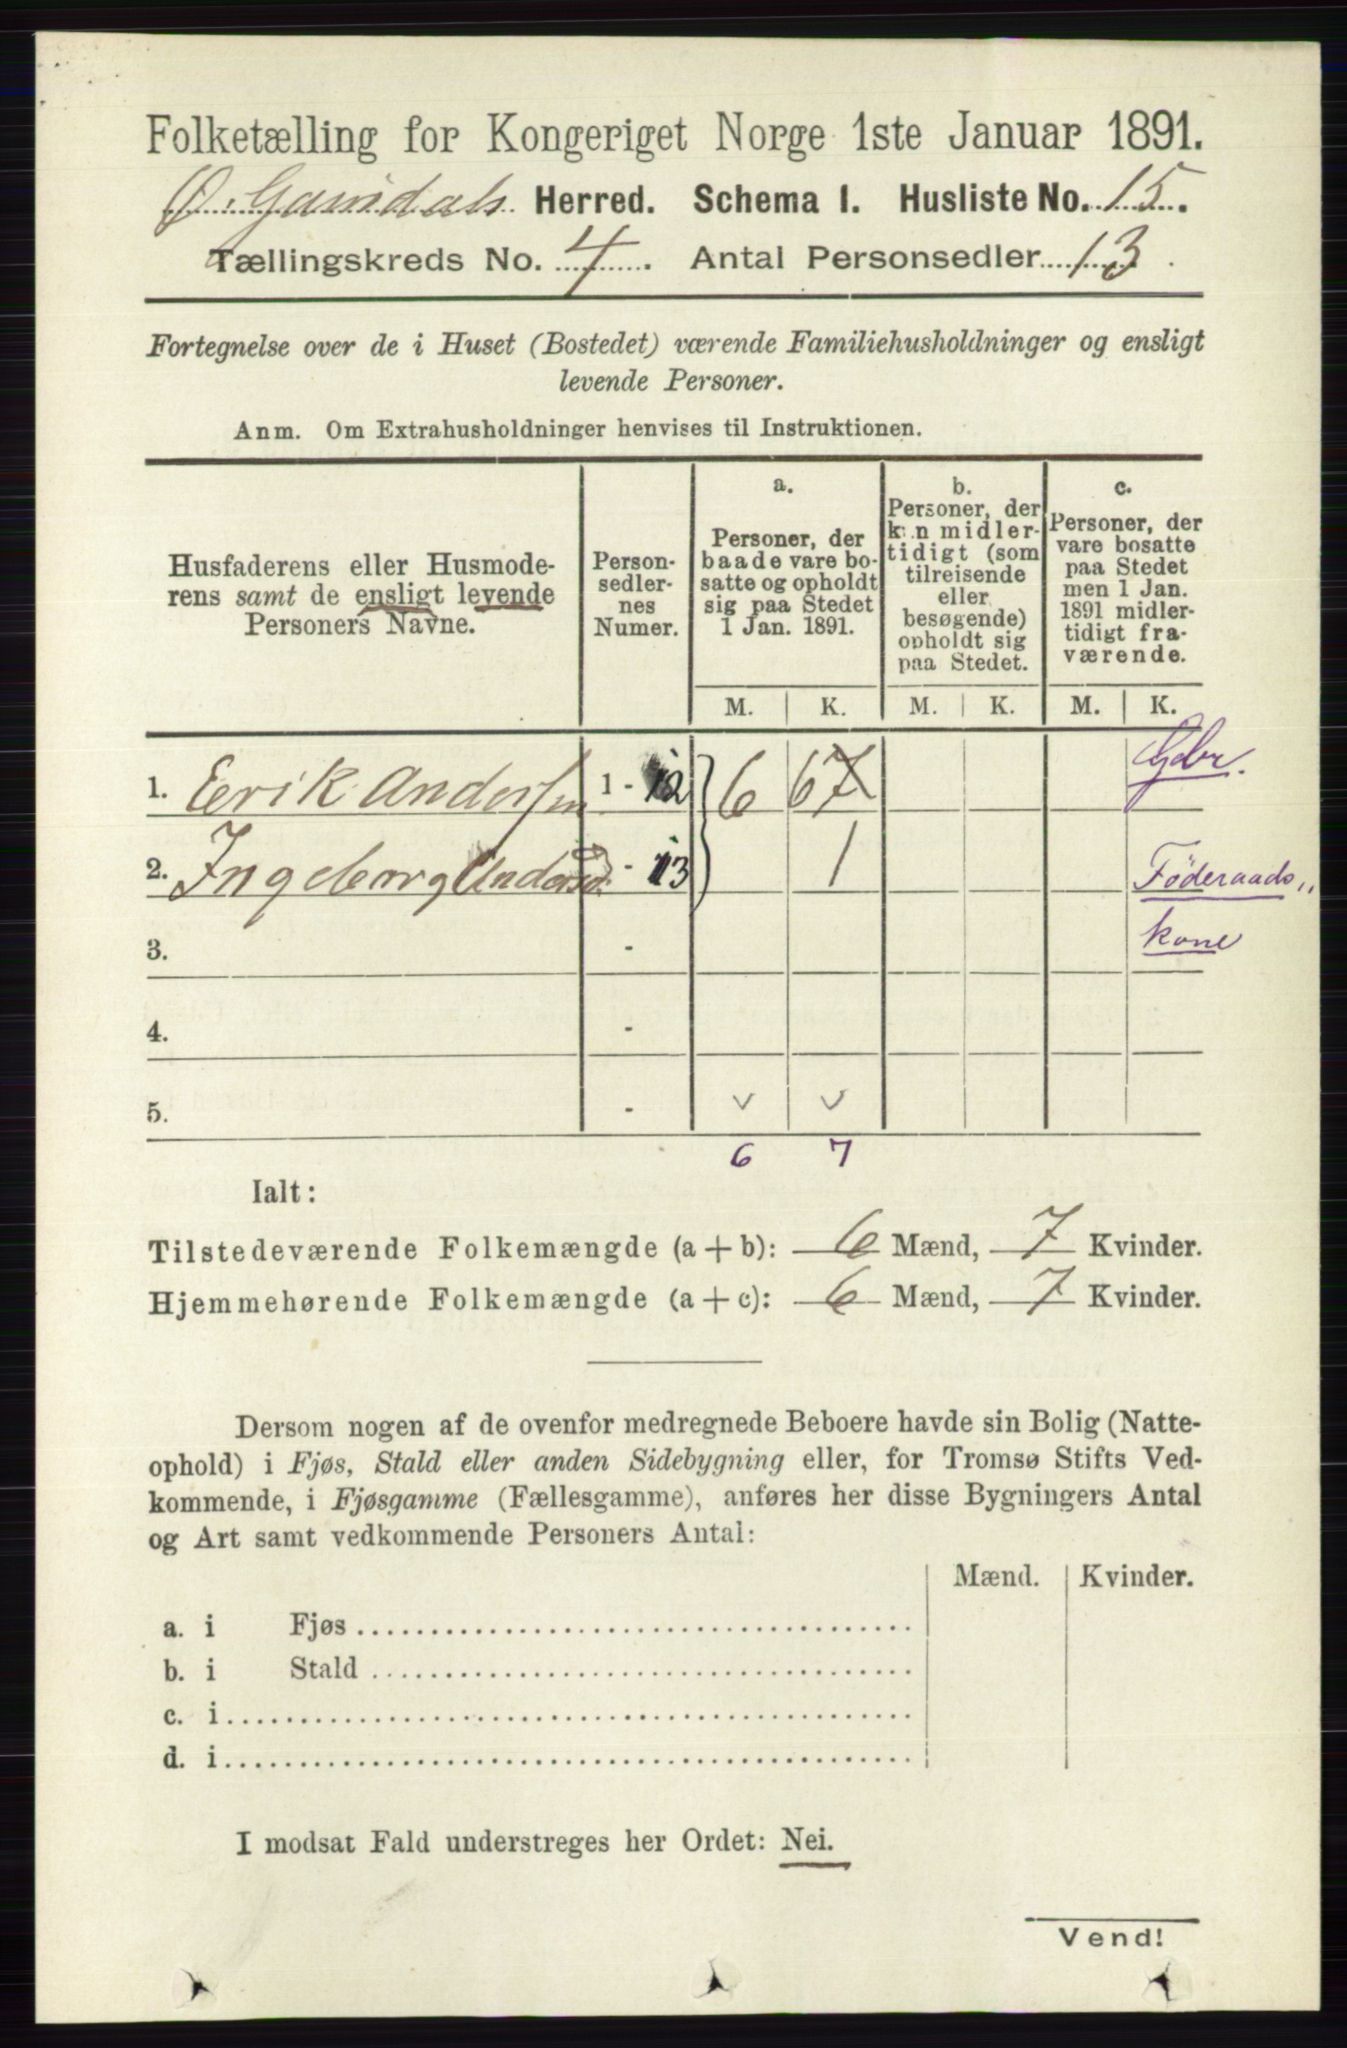 Folketælling for Kongeriget Norge 1ste Januar 1891.
Ø. Gausdals Herred. Schema I. Husliste No. 15.
Tællingskreds No. 4. Antal Personsedler 13.
Fortegnelse over de i Huset (Bostedet) værende Familiehusholdninger og ensligt
levende Personer.
Anm. Om Extrahusholdninger henvises til Instruktionen.
Husfaderens eller Husmode-
rens samt de ensligt levende
Personers Navne.
Person-
sedler-
nes
Numer.
a.
Personer, der
baade vare bo-
satte og opholdt
sig paa Stedet
1 Jan. 1891.
b.
Personer, der
kun midler-
tidigt (som
tilreisende
eller
besøgende)
opholdt sig
paa Stedet.
c.
Personer, der
vare bosatte
paa Stedet
men 1 Jan.
1891 midler-
tidigt fra-
værende.
M. K. M. K. M. K.
1. Erik Andersen 1 - 12 6 6 7 Gbr.
2. Ingeborg Andersd. - 13 1 Föderaads,,
kone
3. -
4. -
5. -
6 7
Ialt:
Tilstedeværende Folkemængde (a + b): 6 Mænd, 7 Kvinder.
Hjemmehørende Folkemængde (a + c): 6 Mænd, 7 Kvinder.
Dersom nogen af de ovenfor medregnede Beboere havde sin Bolig (Natte-
ophold) i Fjøs, Stald eller anden Sidebygning eller, for Tromsø Stifts Ved-
kommende, i Fjøsgamme (Fællesgamme), anføres her disse Bygningers Antal
og Art samt vedkommende Personers Antal:
Mænd. Kvinder.
a. i Fjøs
b. i Stald
c. i
d. i
I modsat Fald understreges her Ordet: Nei.
Vend!